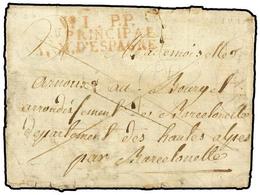 Nº 1. P.P.
PRINCIPAL
d'ESPAGNE
Mademoiselle
arnoux au Bourg et
arrondissement de Barcelonette
departement des hautes alpes
par Barcelonette